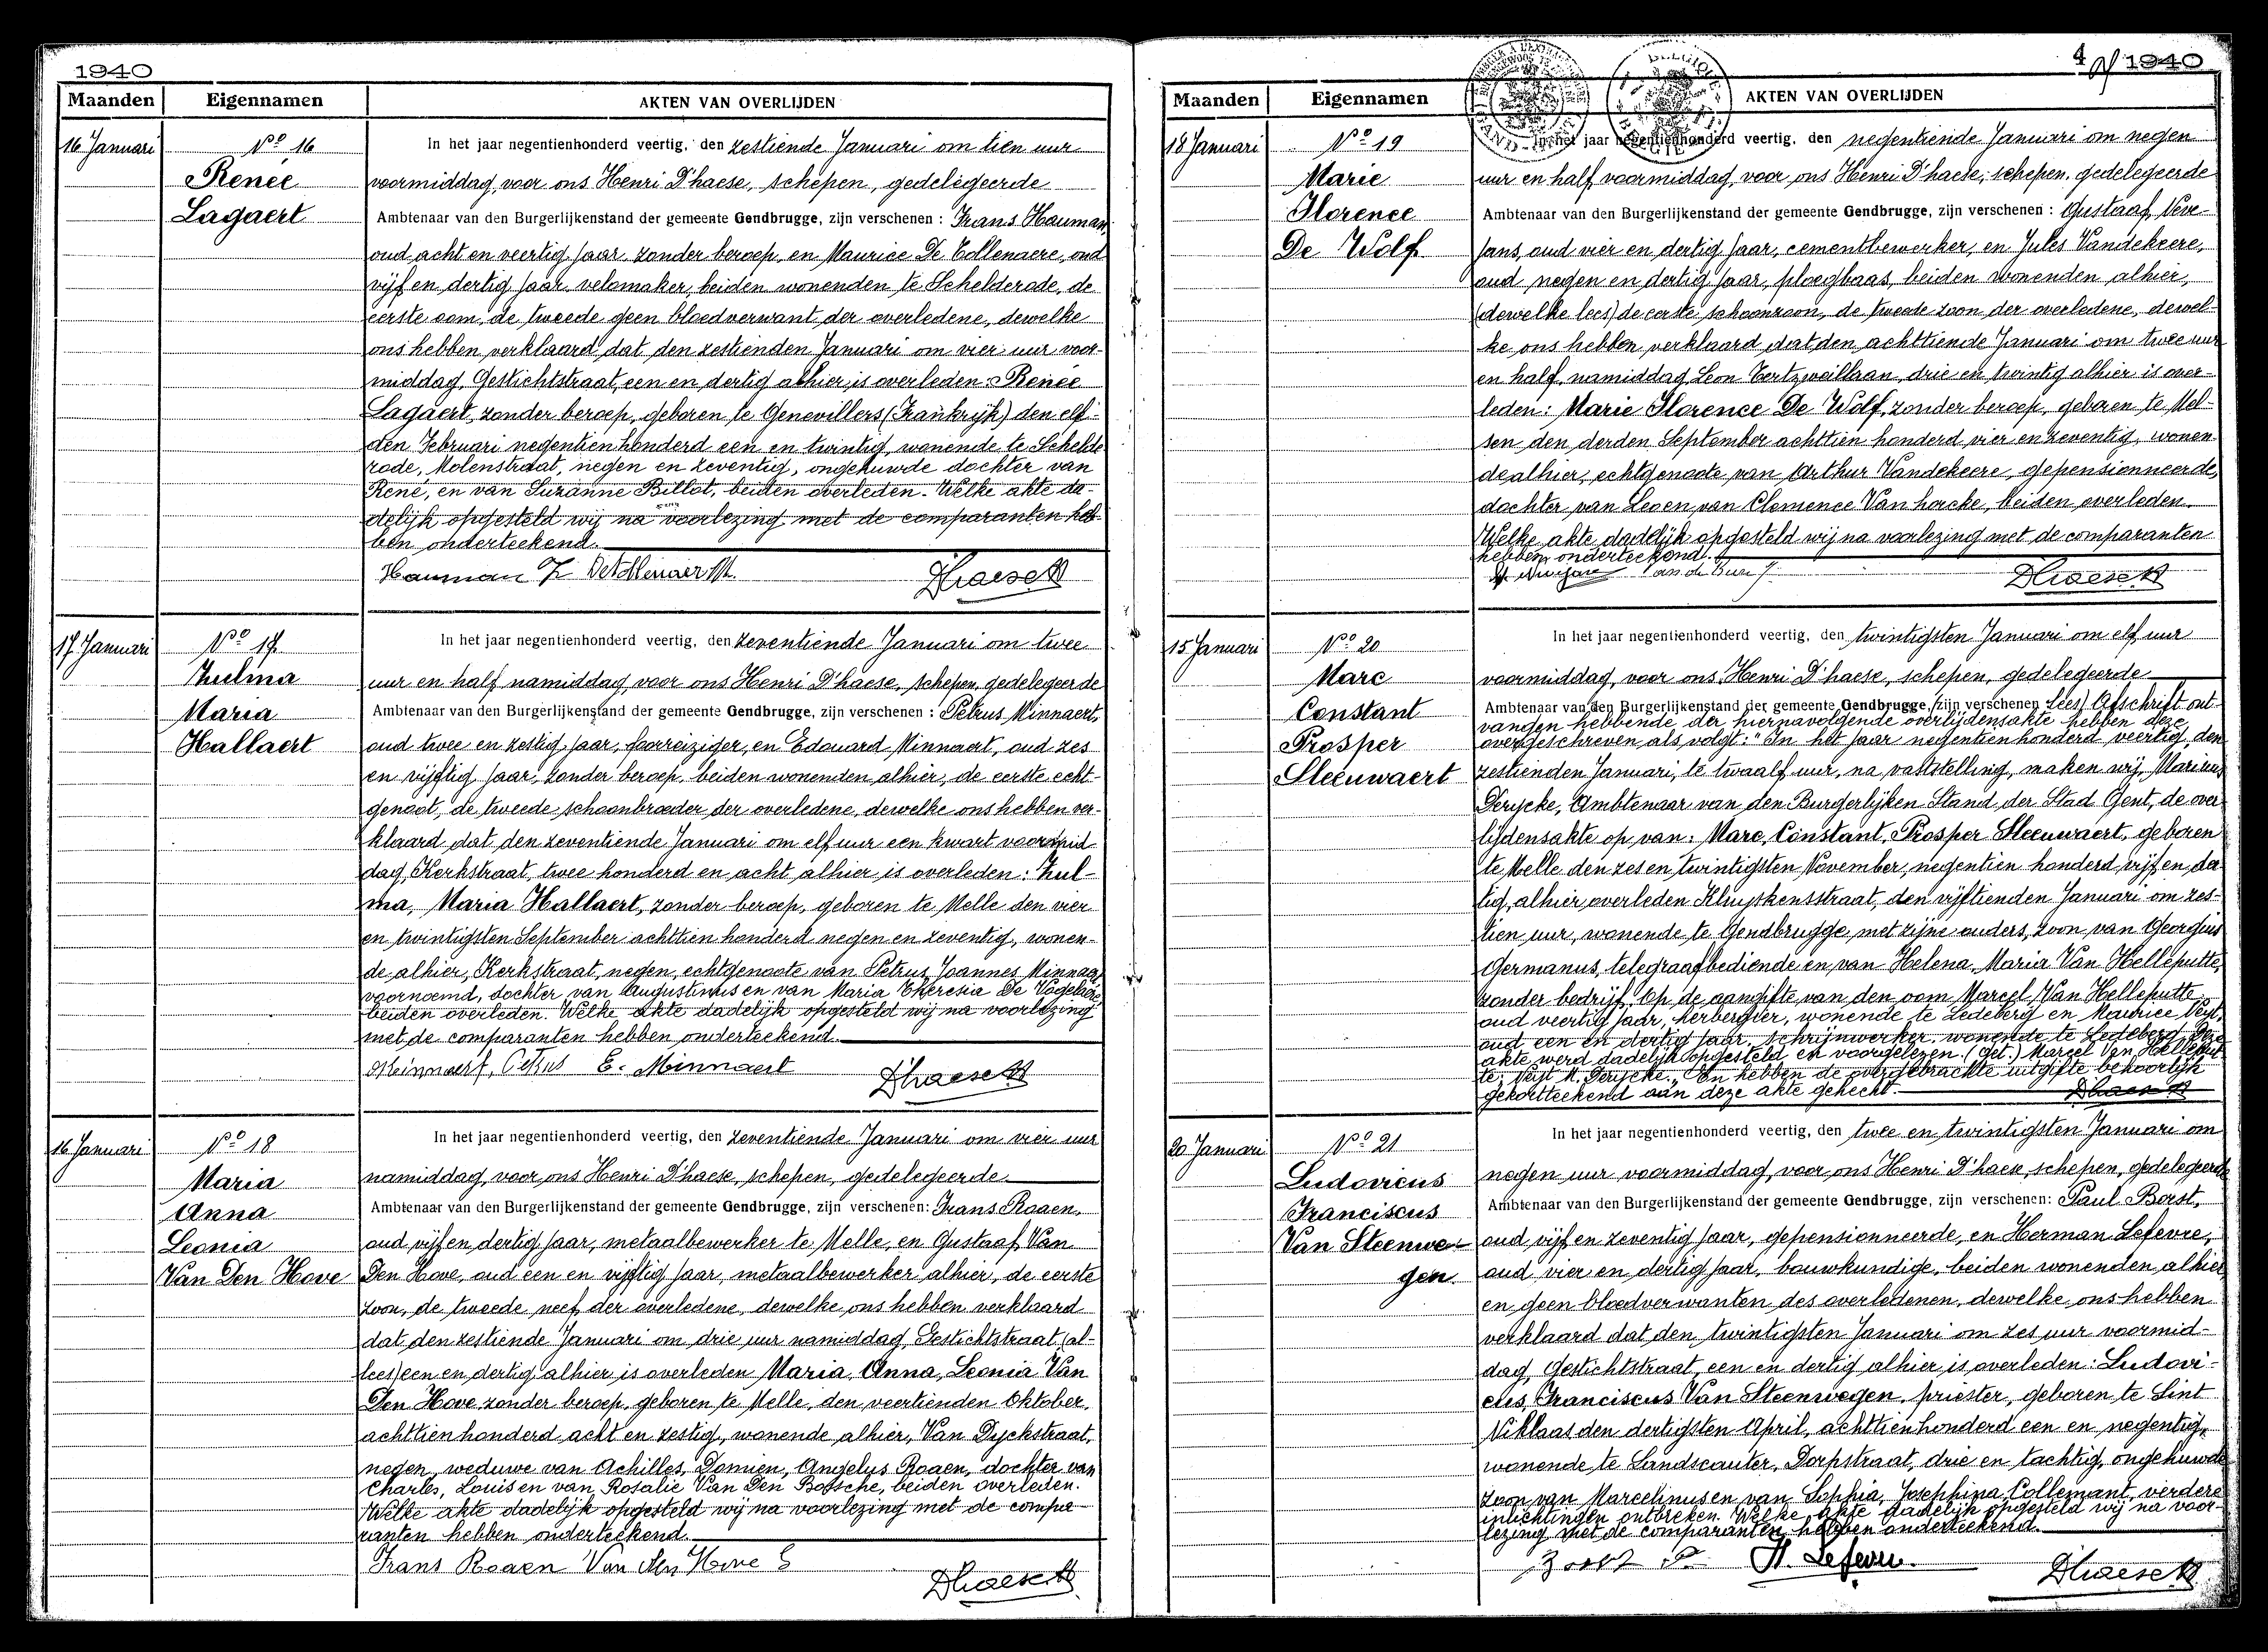 1940
Maanden Eigennamen AKTEN VAN OVERLIJDEN
16 Januari
Nº 16
Renée
Lagaert
In het jaar negentienhonderd veertig, den zestiende Januari om tien uur
voormiddag, voor ons Henri D'haese, schepen, gedelegeerde
Ambtenaar van den Burgerlijkenstand der gemeente Gendbrugge, zijn verschenen : Frans Hauman,
oud acht en veertig jaar, zonder beroep, en Maurice De Tollenaere, oud
vijf en dertig jaar, velomaker, beiden wonenden te Schelderode, de
eerste oom, de tweede geen bloedverwant der overledene, dewelke
ons hebben verklaard dat den zestienden Januari om vier uur voor-
middag, Gestichtstraat, een en dertig alhier is overleden: Renée
Lagaert, zonder beroep, geboren te Genevillers (Frankrijk) den elf-
den Februari negentien honderd een en twintig, wonende te Schelde
rode, Molenstraat, negen en zeventig, ongehuwde dochter van
René, en van Suzanne Billot, beiden overleden. Welke akte da-
delijk opgesteld wij na voorlezing met de comparanten heb-
ben onderteekend.
Hauman F. DeTollenaere M. Dhaese H
17 Januari
Nº 17
Zulma
Maria
Hallaert
In het jaar negentienhonderd veertig, den zeventiende Januari om twee
uur en half namiddag, voor ons Henri D'haese, schepen, gedelegeerde
Ambtenaar van den Burgerlijkenstand der gemeente Gendbrugge, zijn verschenen : Petrus Minnaert,
oud twee en zestig jaar, foorreiziger, en Edouard Minnaert, oud zes
en vijftig jaar, zonder beroep, beiden wonenden alhier, de eerste echt-
genoot, de tweede schoonbroeder der overledene, dewelke ons hebben ver-
klaard dat den zeventiende Januari om elf uur een kwart voormid-
dag, Kerkstraat, twee honderd en acht alhier is overleden: Zul-
ma, Maria Hallaert, zonder beroep, geboren te Melle den vier
en twintigsten September achttien honderd negen en zeventig, wonen-
de alhier, Kerkstraat, negen, echtgenoote van Petrus Joannes Minnaert
voornoemd, dochter van Augustinus en van Maria Theresia De Vogelaere
beiden overleden. Welke akte dadelijk opgesteld wij na voorlezing
met de comparanten hebben onderteekend.
Meinnaert, Petrus E. Minnaert Dhaese H
16 Januari
Nº 18
Maria
Anna
Leonia
Van Den Hove
In het jaar negentienhonderd veertig, den zeventiende Januari om vier uur
namiddag, voor ons Henri D'haese, schepen, gedelegeerde
Ambtenaar van den Burgerlijkenstand der gemeente Gendbrugge, zijn verschenen: Frans Roaen,
oud vijf en dertig jaar, metaalbewerker te Melle, en Gustaaf Van
Den Hove, oud een en vijftig jaar, metaalbewerker alhier, de eerste
zoon, de tweede neef der overledene, dewelke ons hebben verklaard
dat den zestiende Januari om drie uur namiddag, Gestichtstraat (al-
lees) een en dertig alhier is overleden Maria, Anna, Leonia Van
Den Hove, zonder beroep, geboren te Melle, den veertienden Oktober,
achttien honderd acht en zestig, wonende alhier, Van Dyckstraat,
negen, weduwe van Achilles, Domien, Angelus Roaen, dochter van
Charles, Louis en van Rosalie Van Den Bossche, beiden overleden.
Welke akte dadelijk opgesteld wij na voorlezing met de compa-
ranten hebben onderteekend.
Frans Roaen Van den Hove G Dhaese H
4 1940
Maanden Eigennamen AKTEN VAN OVERLIJDEN
18 Januari
Nº 19
Marie
Florence
De Wolf
In het jaar negentienhonderd veertig, den negentiende Januari om negen
uur en half voormiddag, voor ons Henri D'haese, schepen, gedelegeerde
Ambtenaar van den Burgerlijkenstand der gemeente Gendbrugge, zijn verschenen : Gustaaf
oud vier en dertig jaar, cementbewerker, en Jules Vandekeere,
oud negen en dertig jaar, ploegbaas, beiden wonenden alhier,
(dewelke lees) de eerste schoonzoon, de tweede zoon der overledene, dewel-
ke ons hebben verklaard dat den achttiende Januari om twee uur
en half namiddag, Leon Tertzweillaan, drie en twintig alhier is over-
leden: Marie Florence De Wolf, zonder beroep, geboren te Mel-
sen den derden September achttien honderd vier en zeventig, wonen-
de alhier, echtgenoote van Arthur Vandekeere, gepensionneerde,
dochter van Leo en van Clemence Van hoecke, beiden overleden.
Welke akte dadelijk opgesteld wij na voorlezing met de comparanten
hebben onderteekend.
Dhaese H
15 Januari
Nº 20
Marc
Constant
Prosper
Steeuwaert
In het jaar negentienhonderd veertig, den twintigsten Januari om elf uur
voormiddag, voor ons Henri D'haese, schepen, gedelegeerde
Ambtenaar van den Burgerlijkenstand der gemeente Gendbrugge, (zijn verschenen lees) Afschrift ont-
vangen hebbende der hiernavolgende overlijdensakte hebben deze
overgeschreven als volgt: "In het jaar negentien honderd veertig, den
zestienden Januari, te twaalf uur, na vaststelling, maken wij, Marinus
Derycke, Ambtenaar van den Burgerlijken Stand der Stad Gent, de over-
lijdensakte op van: Marc, Constant, Prosper Steeuwaert, geboren
te Melle den zes en twintigsten November, negentien honderd vijf en der-
tig, alhier overleden Kluyskensstraat, den vijftienden Januari om zes-
tien uur, wonende te Gendbrugge, met zijne ouders, zoon van Georgius
Germanus, telegraafbediende en van Helena, Maria Van Helleputte,
zonder bedrijf. Op de aangifte van den oom Marcel Van Helleputte
oud veertig jaar, herbergier, wonende te Ledeberg en Maurice Veyt,
oud een en dertig jaar, schrijnwerker, wonende te Ledeberg. Deze
akte werd dadelijk opgesteld en voorgelezen. (Get.) Marcel Van Helleput-
te; Veyt M. Derycke." En hebben de overgebrachte uitgifte behoorlijk
gekortteekend aan deze akte gehecht. Dhaese H
20 Januari
Nº 21
Ludovicus
Franciscus
Van Steenwe-
gen
In het jaar negentienhonderd veertig, den twee en twintigsten Januari om
negen uur voormiddag, voor ons Henri D'haese, schepen, gedelegeerde
Ambtenaar van den Burgerlijkenstand der gemeente Gendbrugge, zijn verschenen: Paul Borst,
oud vijf en zeventig jaar, gepensionneerde, en Herman Lefevre,
oud vier en dertig jaar, bouwkundige, beiden wonenden alhier
en geen bloedverwanten des overledenen, dewelke ons hebben
verklaard dat den twintigsten Januari om zes uur voormid-
dag, Gestichtstraat, een en dertig alhier is overleden: Ludovi-
cus, Franciscus Van Steenwegen, priester, geboren te Sint
Niklaas den dertigsten April, achttien honderd een en negentig,
wonende te Landscauter, Dorpstraat, drie en tachtig, ongehuwde
zoon van Marcelinus en van Sophia, Josephina Collemant, verdere
inlichtingen ontbreken. Welke akte dadelijk opgesteld wij na voor-
lezing met de comparanten hebben onderteekend.
H. Lefevre. Dhaese H